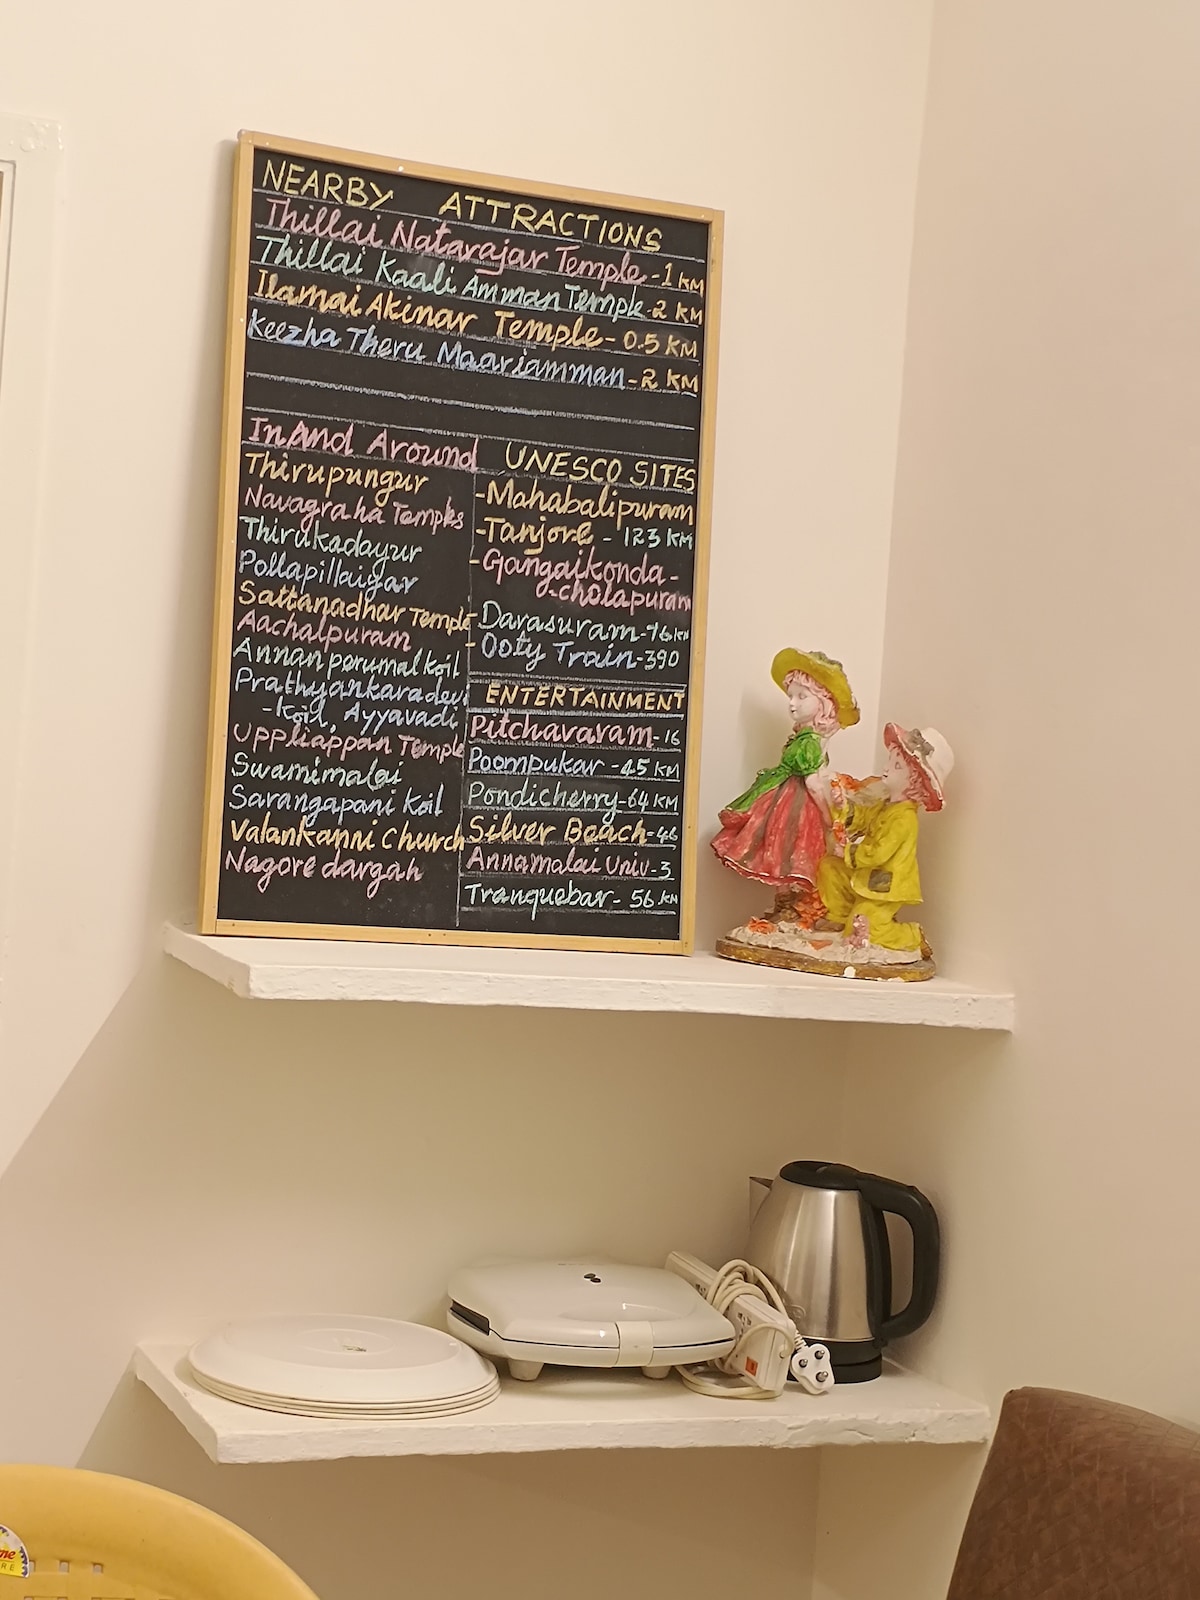 NEARBY ATTRACTIONS
Thillai Natarajar Temple - 1 KM
Thillai Kaali Amman Temple - 2 KM
Ilamai Akinar Temple - 0.5 KM
Keezha Theru Maariamman - 2 KM
In And Around
Thirupungur
Navagraha Temples
Thirukadayur
Pollapillaiyar
Sattanadhar Temple
Aachalpuram
Annan perumal koil
Prathyankaradevi
- Koil, Ayyavadi
Uppliappan Temple
Swamimalai
Sarangapani Koil
Valankanni Church
Nagore dargah
UNESCO SITES
- Mahabalipuram
- Tanjore - 123 KM
- Gangaikonda -
- cholapuram
Darasuram - 76 KM
- Ooty Train - 390
ENTERTAINMENT
Pitchavaram - 16
Poompukar - 45 KM
Pondicherry - 64 KM
Silver Beach - 46
Annamalai Univ - 3
Tranquebar - 56 KM